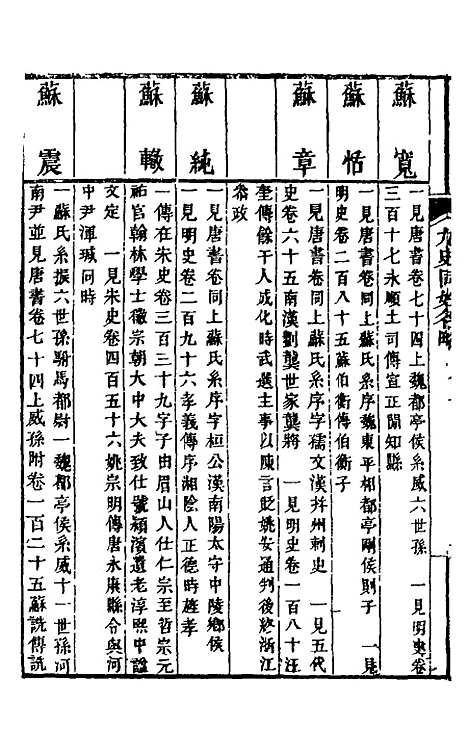 九史同姓名略
蘇寬
一見唐書卷七十四上魏都亭侯系威六世孫　一見明史卷
三百十七永順土司傳宣正閒知縣
蘇恬
一見唐書卷同上蘇氏系序魏東平相都亭剛侯則子　一見
明史卷二百八十五蘇伯衡傳伯衡子
蘇章
一見唐書卷同上蘇氏系序字孺文漢并州刺史　一見五代
史卷六十五南漢劉龑世家龑將　一見明史卷一百八十汪
奎傳餘干人成化時武選主事以陳言貶姚安通判後終浙江
參政
蘇純
一見唐書卷同上蘇氏系序字桓公漢南陽太守中陵鄉侯
一見明史卷二百九十六孝義傳序湘陰人正德時旌孝
蘇轍
一傳在宋史卷三百三十九字子由眉山人仕仁宗至哲宗元
祐官翰林學士徽宗朝大中大夫致仕號潁濱遺老淳熙中諡
文定　一見宋史卷四百五十六姚宗明傳唐永康縣令與河
中尹渾瑊同時
蘇震
一蘇氏系振六世孫駙馬都尉一魏都亭侯系威十一世孫河
南尹並見唐書卷七十四上威孫附卷一百二十五蘇詵傳詵